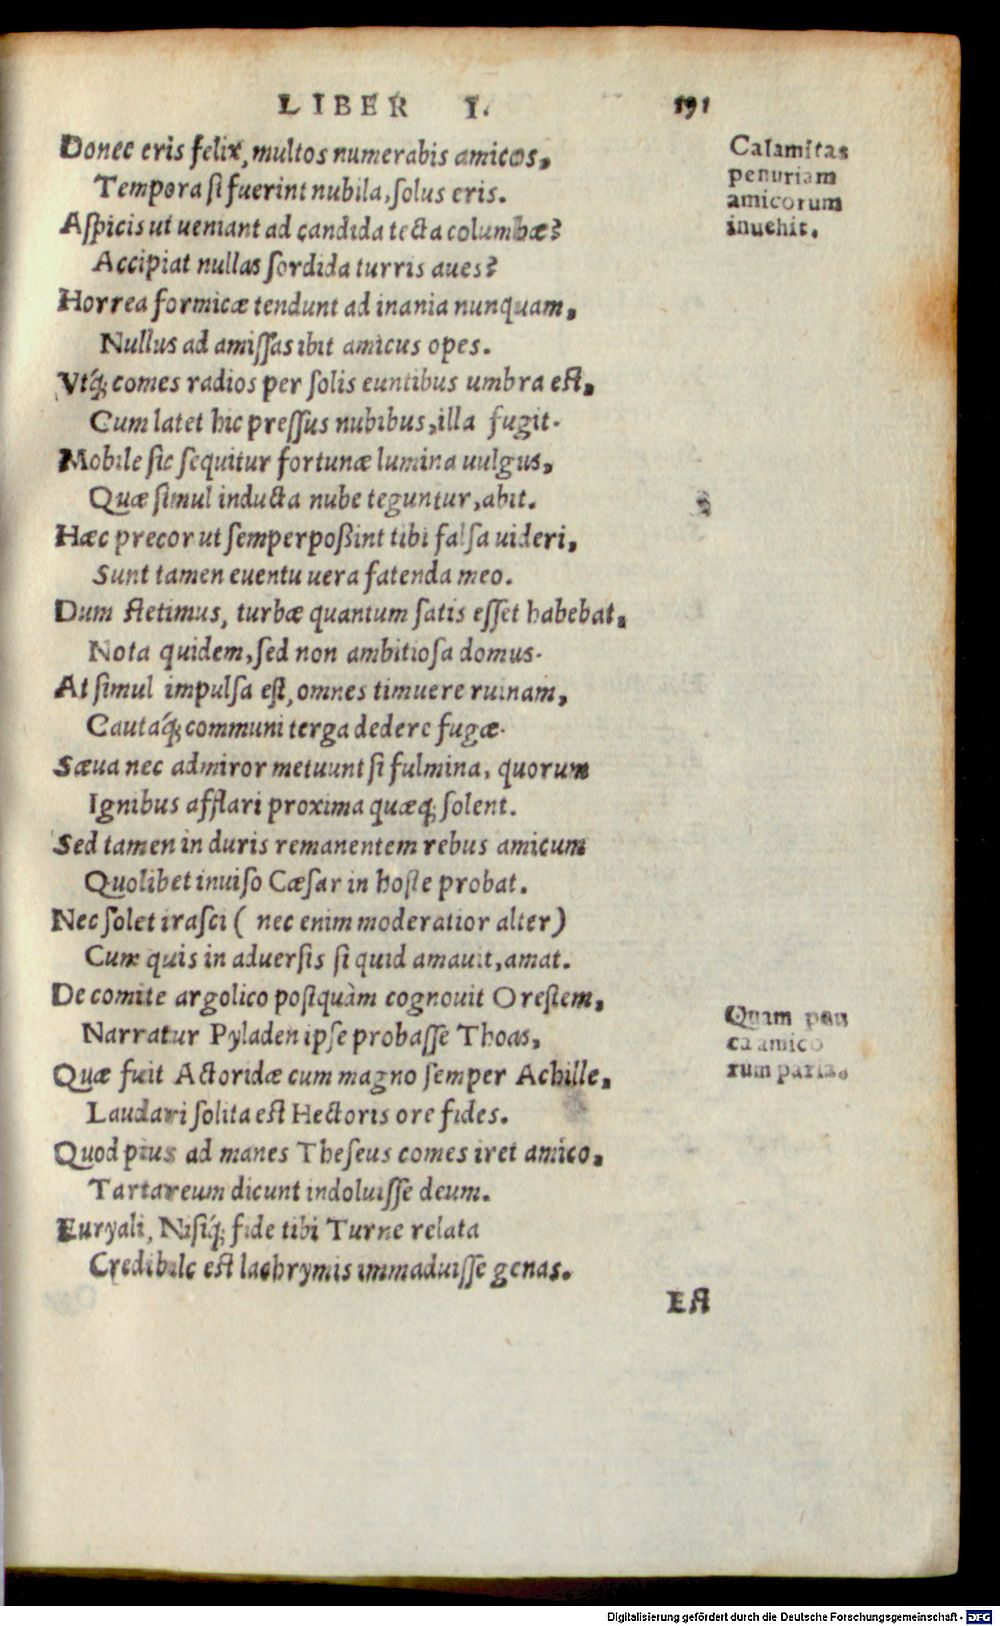 LIBER I. 191
Donec eris felix, multos numerabis amicos,
Tempora ſi fuerint nubila, ſolus eris.
Aſpicis ut ueniant ad candida tecta columbæ?
Accipiat nullas ſordida turris aues?
Horrea formicæ tendunt ad inania nunquam,
Nullus ad amiſſas ibit amicus opes.
Vtq́; comes radios per ſolis euntibus umbra eſt,
Cum latet hic preſſus nubibus, illa fugit.
Mobile ſic ſequitur fortunæ lumina uulgus,
Quæ ſimul inducta nube teguntur, abit.
Hæc precor ut ſemper poßint tibi falſa uideri,
Sunt tamen euentu uera fatenda meo.
Dum ſtetimus, turbæ quantum ſatis eſſet habebat,
Nota quidem, ſed non ambitioſa domus.
At ſimul impulſa eſt, omnes timuere ruinam,
Cautaq́; communi terga dedere fugæ.
Sæua nec admiror metuunt ſi fulmina, quorum
Ignibus afflari proxima quæq; ſolent.
Sed tamen in duris remanentem rebus amicum
Quolibet inuiſo Cæſar in hoſte probat.
Nec ſolet iraſci ( nec enim moderatior alter)
Cum quis in aduerſis ſi quid amauit, amat.
De comite argolico poſtquàm cognouit Oreſtem,
Narratur Pyladen ipſe probaſſe Thoas,
Quæ fuit Actoridæ cum magno ſemper Achille,
Laudari ſolita eſt Hectoris ore fides.
Quod pius ad manes Theſeus comes iret amico,
Tartareum dicunt indoluiſſe deum.
Euryali, Niſiq́; fide tibi Turne relata
Credibile eſt lachrymis immaduiſſe genas.
Eſt
Calamitas
penuriam
amicorum
inuehit.
Quam pau
ca amico
rum paria.
Digitalisierung gefördert durch die Deutsche Forschungsgemeinschaft - DFG